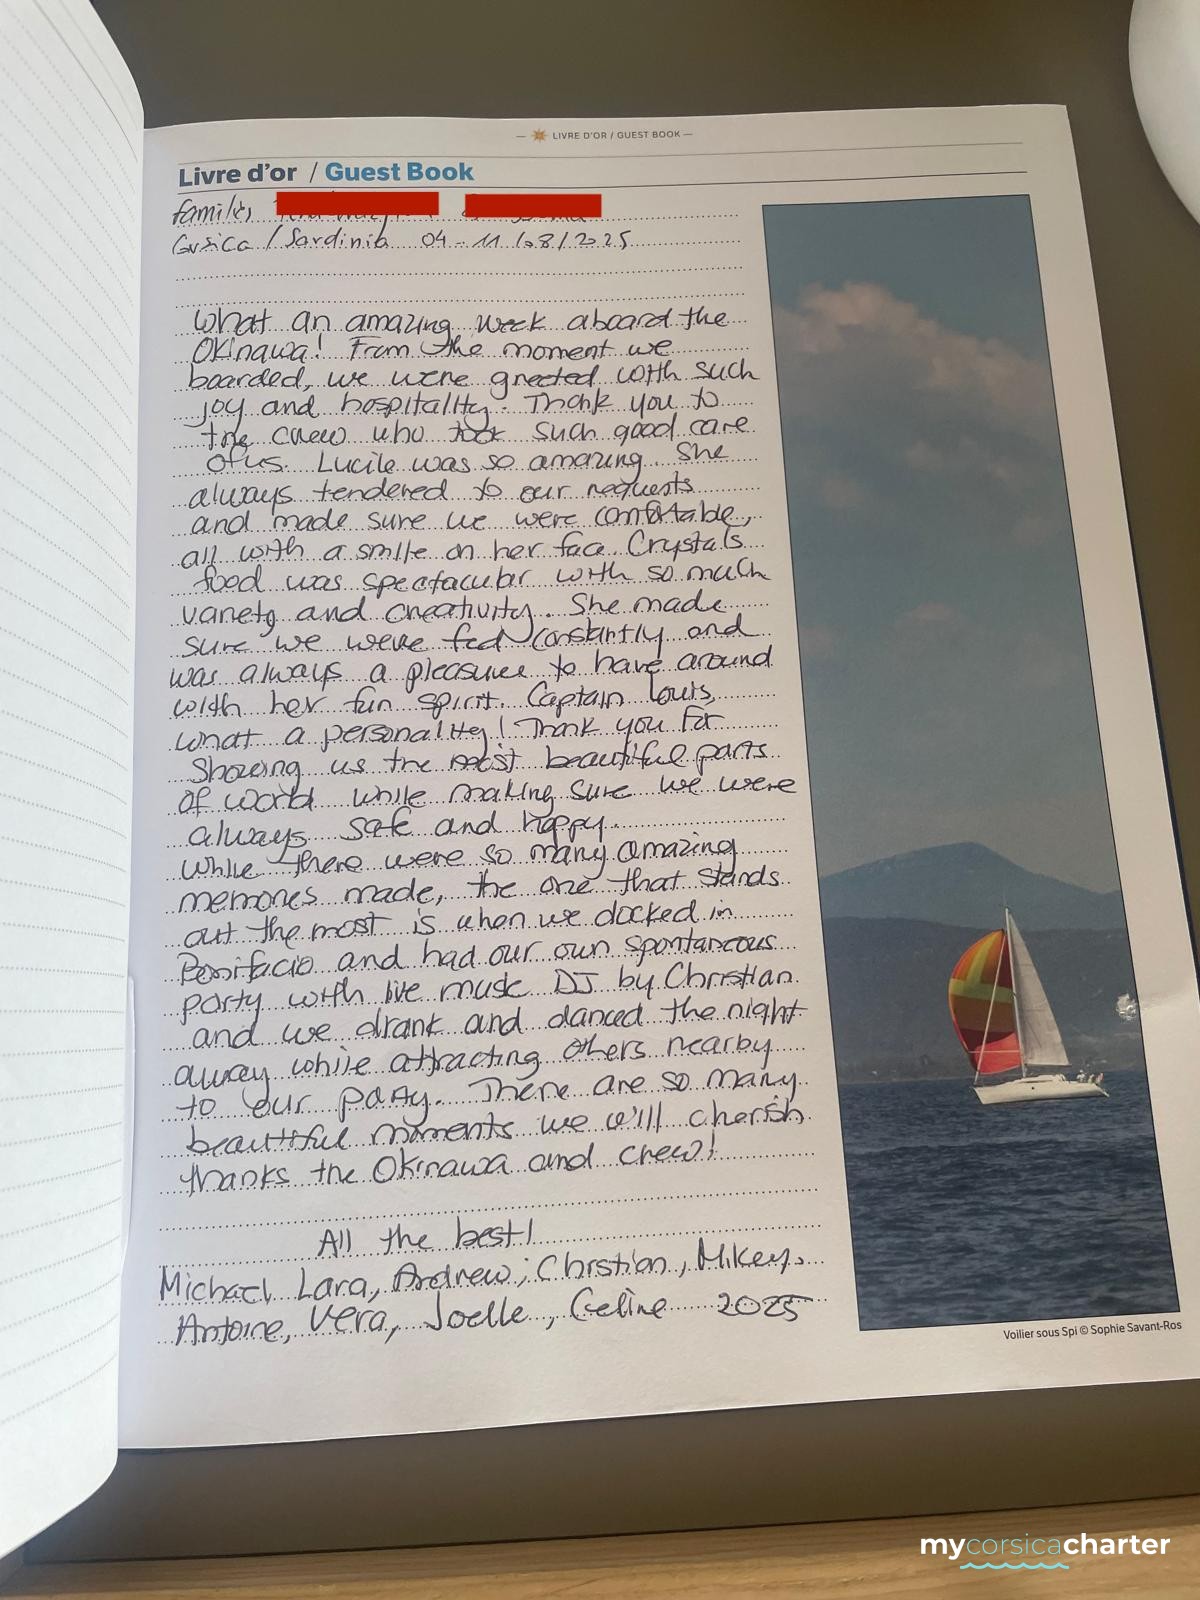 LIVRE D'OR / GUEST BOOK
Livre d'or / Guest Book
Families
Corsica / Sardinia 04 - 11 / 08 / 2025
What an amazing week aboard the
Okinawa! From the moment we
boarded, we were greeted with such
joy and hospitality. Thank you to
the crew who took such good care
of us. Lucile was so amazing. She
always tendered to our requests
and made sure we were comfortable,
all with a smile on her face. Crystals
food was spectacular with so much
variety and creativity. She made
sure we were fed constantly and
was always a pleasure to have around
with her fun spirit. Captain Louis,
what a personality! Thank you for
showing us the most beautiful parts
of world while making sure we were
always safe and happy.
While there were so many amazing
memories made, the one that stands
out the most is when we docked in
Bonifacio and had our own spontaneous
party with live music DJ by Christian
and we drank and danced the night
away while attracting others nearby
to our party. There are so many
beautiful moments we will cherish
thanks the Okinawa and crew!
All the best!
Michael, Lara, Andrew, Christian, Mikey,
Antoine, Vera, Joelle, Celine 2025
Voilier sous Spi © Sophie Savant-Ros
mycorsicacharter